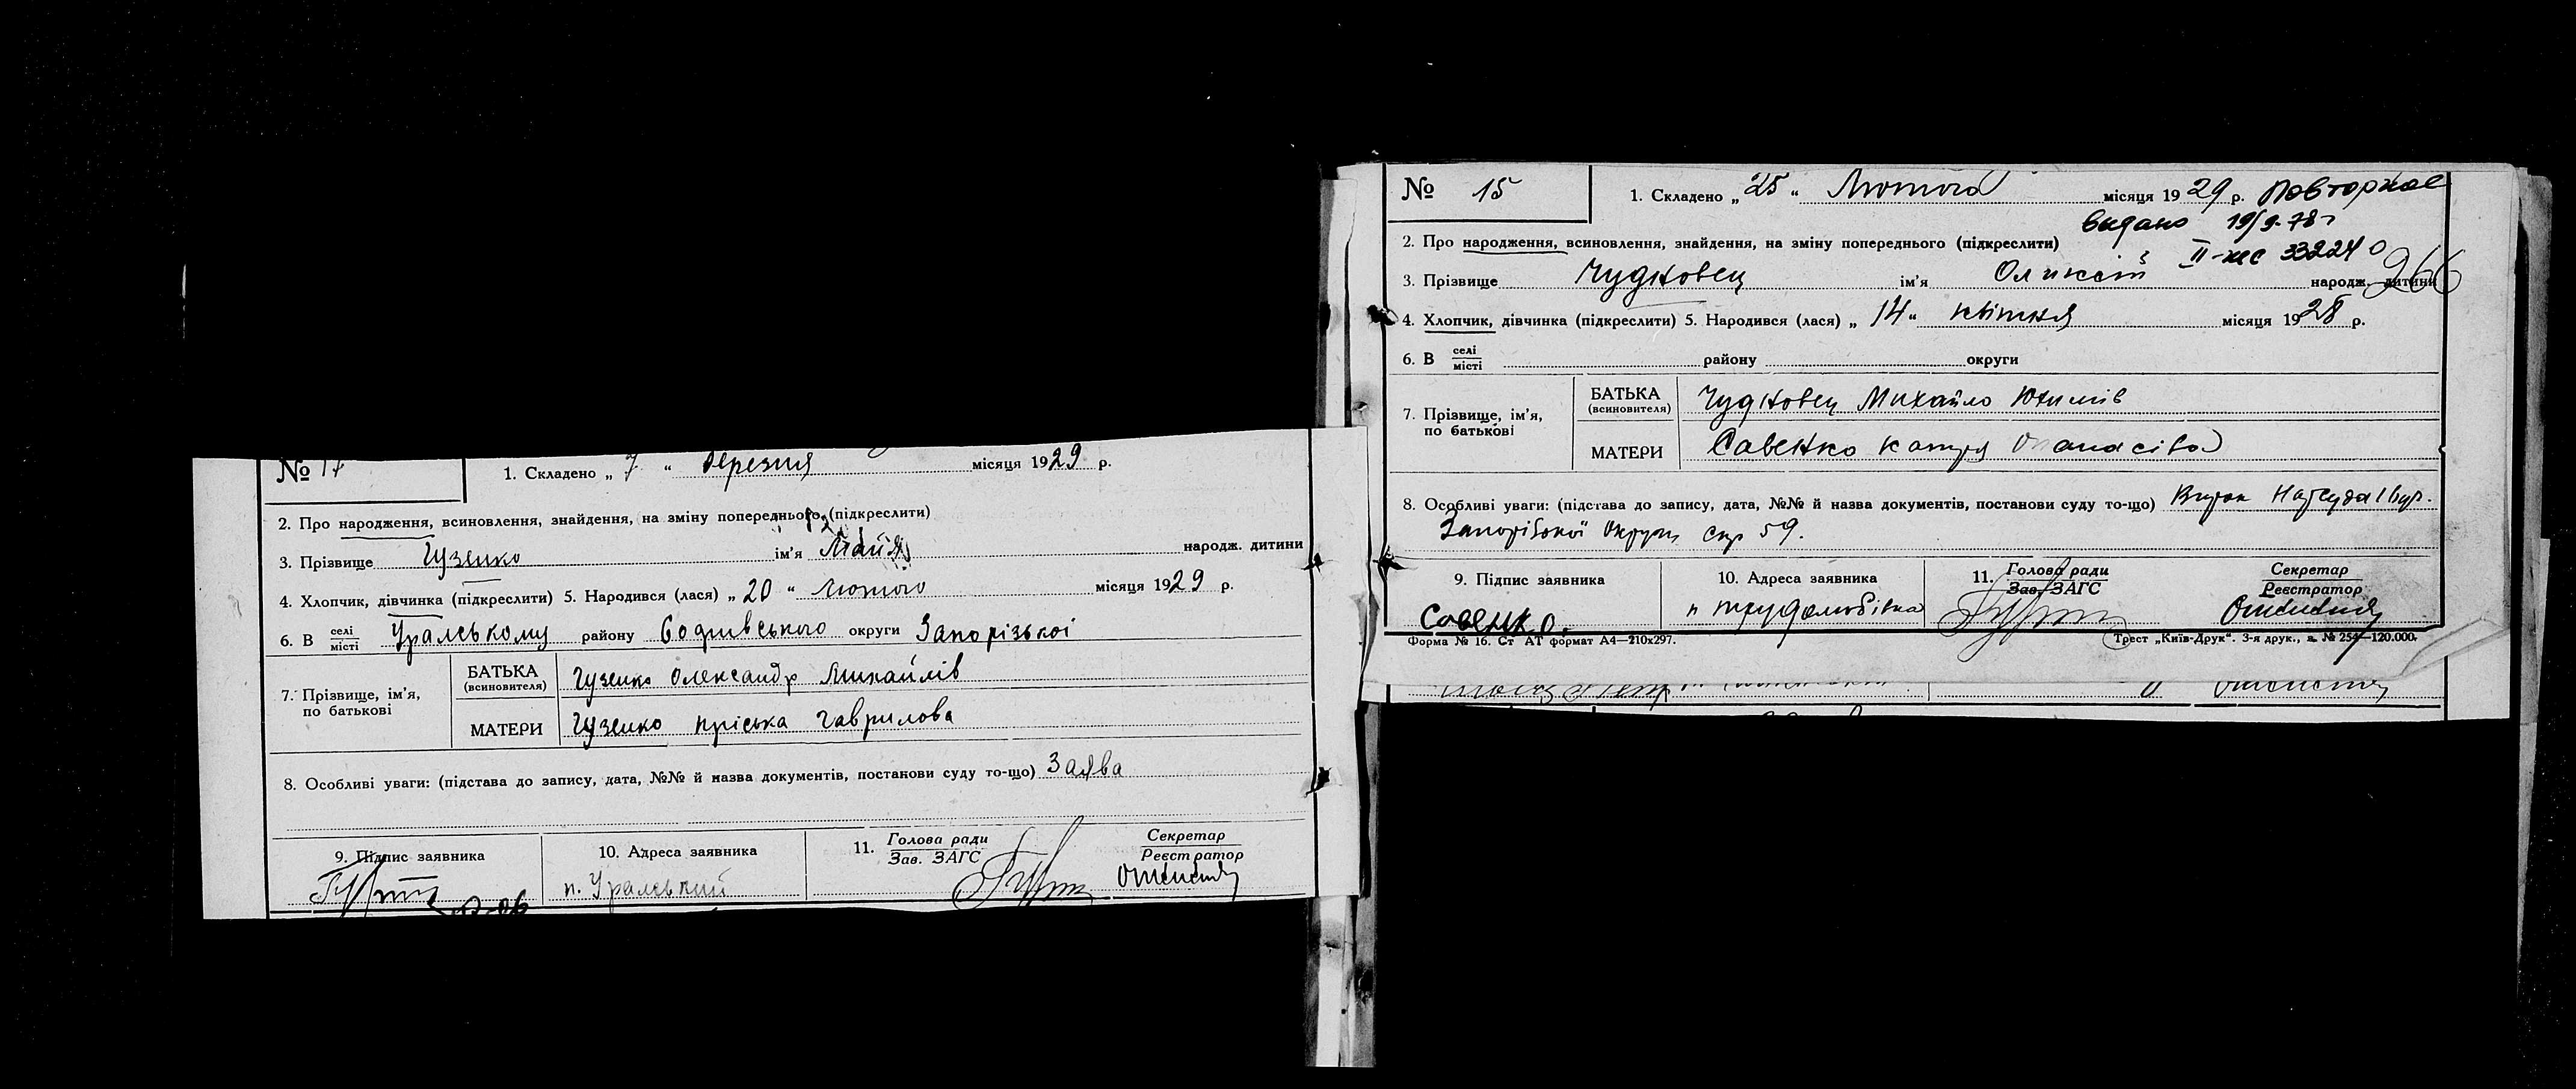 № 17 1. Складено „ 7 “ березня місяця 1929 р.
2. Про народження, всиновлення, знайдення, на зміну попереднього (підкреслити)
3. Прізвище Гузенко ім’я Майя народж. дитини
4. Хлопчик, дівчинка (підкреслити) 5. Народився (лася) „ 20 “ лютого місяця 1929 р.
6. В селі місті Уральському району округи Запорізької
7. Прізвище, ім’я, по батькові
БАТЬКА (всиновителя) Гузенко Олександр Михайлів
МАТЕРИ Гузенко Пріська Гаврилова
8. Особливі уваги: (підстава до запису, дата, №№ й назва документів, постанови суду то-що) Заява
9. Підпис заявника 10. Адреса заявника 11. Голова ради Зав. ЗАГС Секретар Реєстратор
п. Уральський
№ 15 1. Складено „ 25 “ Лютого місяця 1929 р. Повторное
выдано 19/9-78г
2. Про народження, всиновлення, знайдення, на зміну попереднього (підкреслити)
332240
266
3. Прізвище Чудновец ім’я Оликсій народж. дитини
4. Хлопчик, дівчинка (підкреслити) 5. Народився (лася) „ 14 “ квітня місяця 1928 р.
6. В селі місті району округи
7. Прізвище, ім’я, по батькові
БАТЬКА (всиновителя) Чудновец Михайло Юхимів
МАТЕРИ Савенко Катря Опанасівна
8. Особливі уваги: (підстава до запису, дата, №№ й назва документів, постанови суду то-що) Витяг Нарсуда
Запорізької Округи стр 59.
9. Підпис заявника 10. Адреса заявника 11. Голова ради Зав. ЗАГС Секретар Реєстратор
Савенко. п Трудолюбівка
Форма № 16. Ст АТ формат А4—210х297. Трест „Київ-Друк“. 3-я друк., з. № 254—120.000.